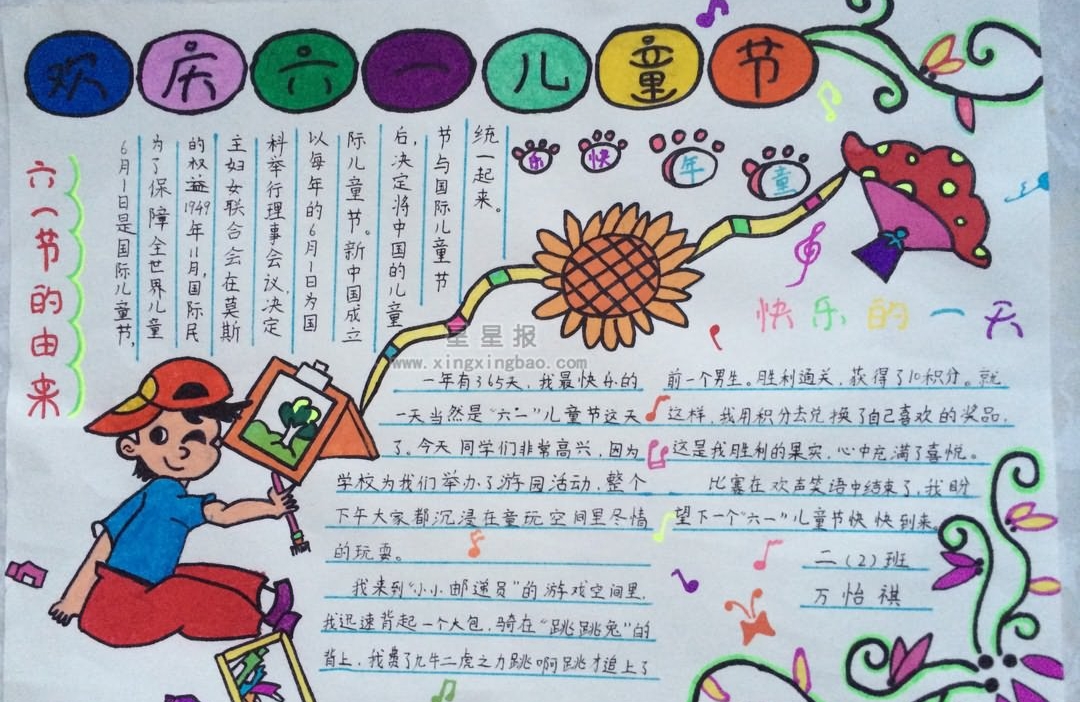 欢庆六一儿童节
六一节的由来
6月1日是国际儿童节,
为了保障全世界儿童
的权益1949年11月,国际民
主妇女联合会在莫斯
科举行理事会议,决定
以每年的6月1日为国
际儿童节。新中国成立
后,决定将中国的儿童
节与国际儿童节
统一起来。
乐快年童
星星报
www.xingxingbao.com
快乐的一天
一年有365天,我最快乐的
一天当然是“六一”儿童节这天
了。今天同学们非常高兴,因为
学校为我们举办了游园活动,整个
下午大家都沉浸在童玩空间里尽情
的玩耍。
我来到“小小邮递员”的游戏空间里,
我迅速背起一个大包,骑在“跳跳兔”的
背上,我费了九牛二虎之力跳啊跳才追上了
前一个男生。胜利通关,获得了10积分。就
这样,我用积分去兑换了自己喜欢的奖品,
这是我胜利的果实,心中充满了喜悦。
比赛在欢声笑语中结束了,我盼
望下一个“六一”儿童节快快到来。
二(2)班
万怡祺